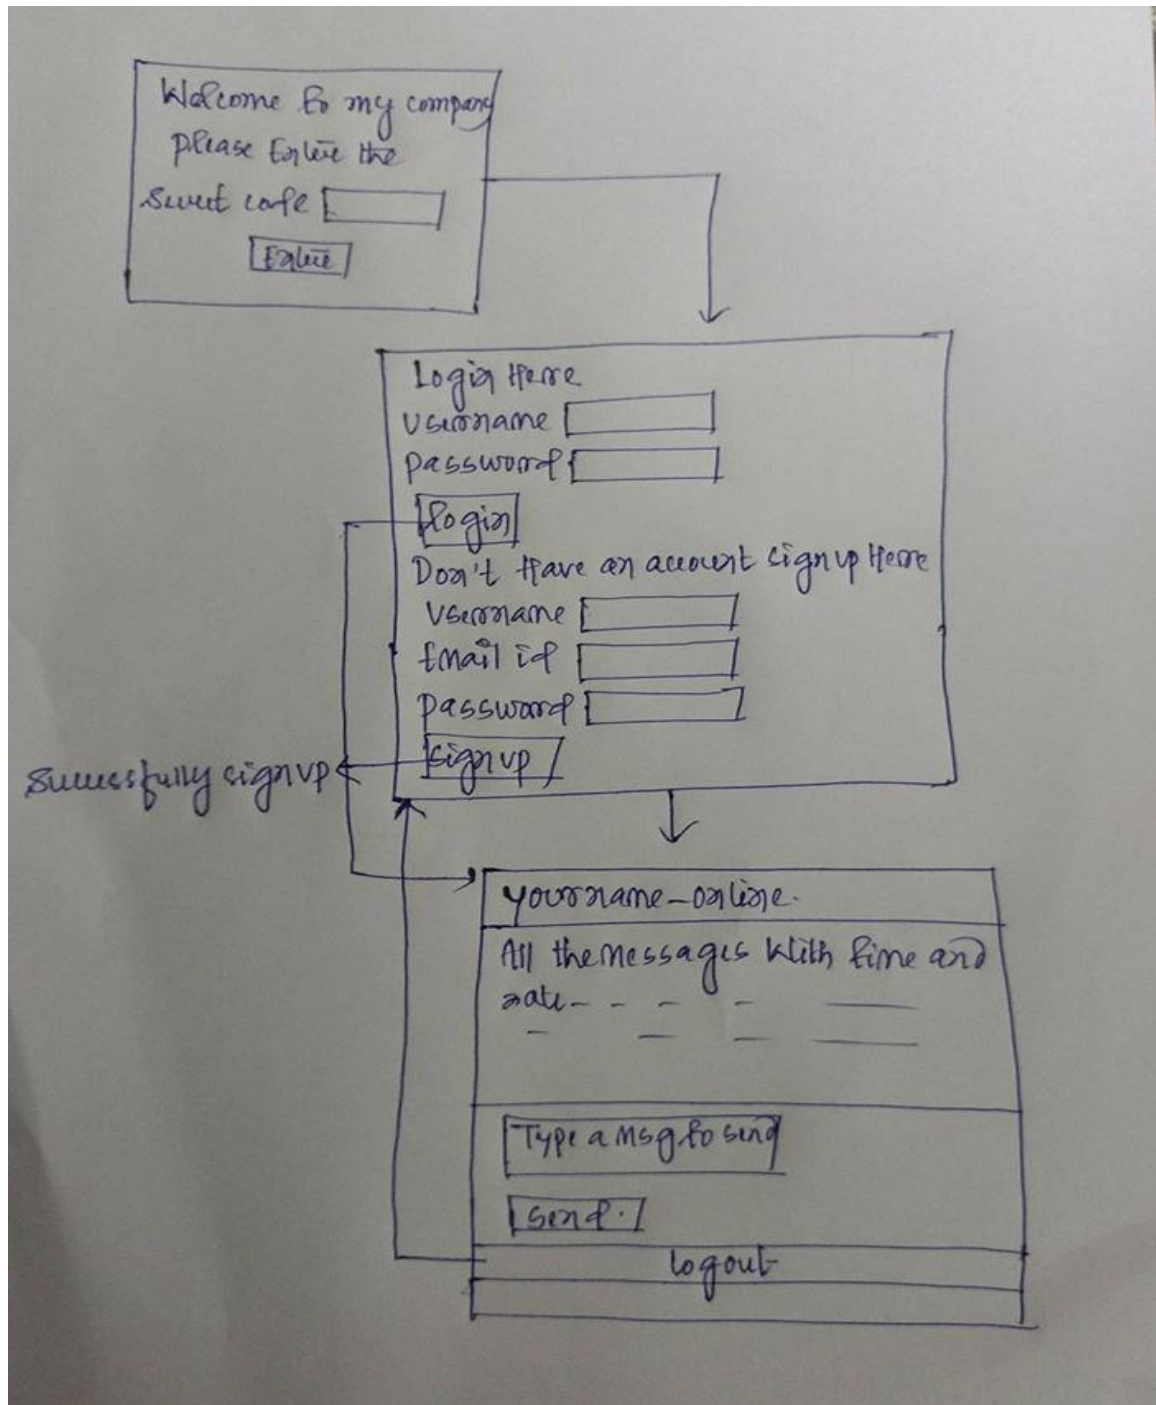 Welcome to my company
please Enter the
Secret code
Enter
Login Here
Username
password
login
Don't Have an account signup Here
Username
Email id
password
signup
Successfully signup
yourname-online.
All the Messages With time and
date
Type a Msg to send
Send.
logout